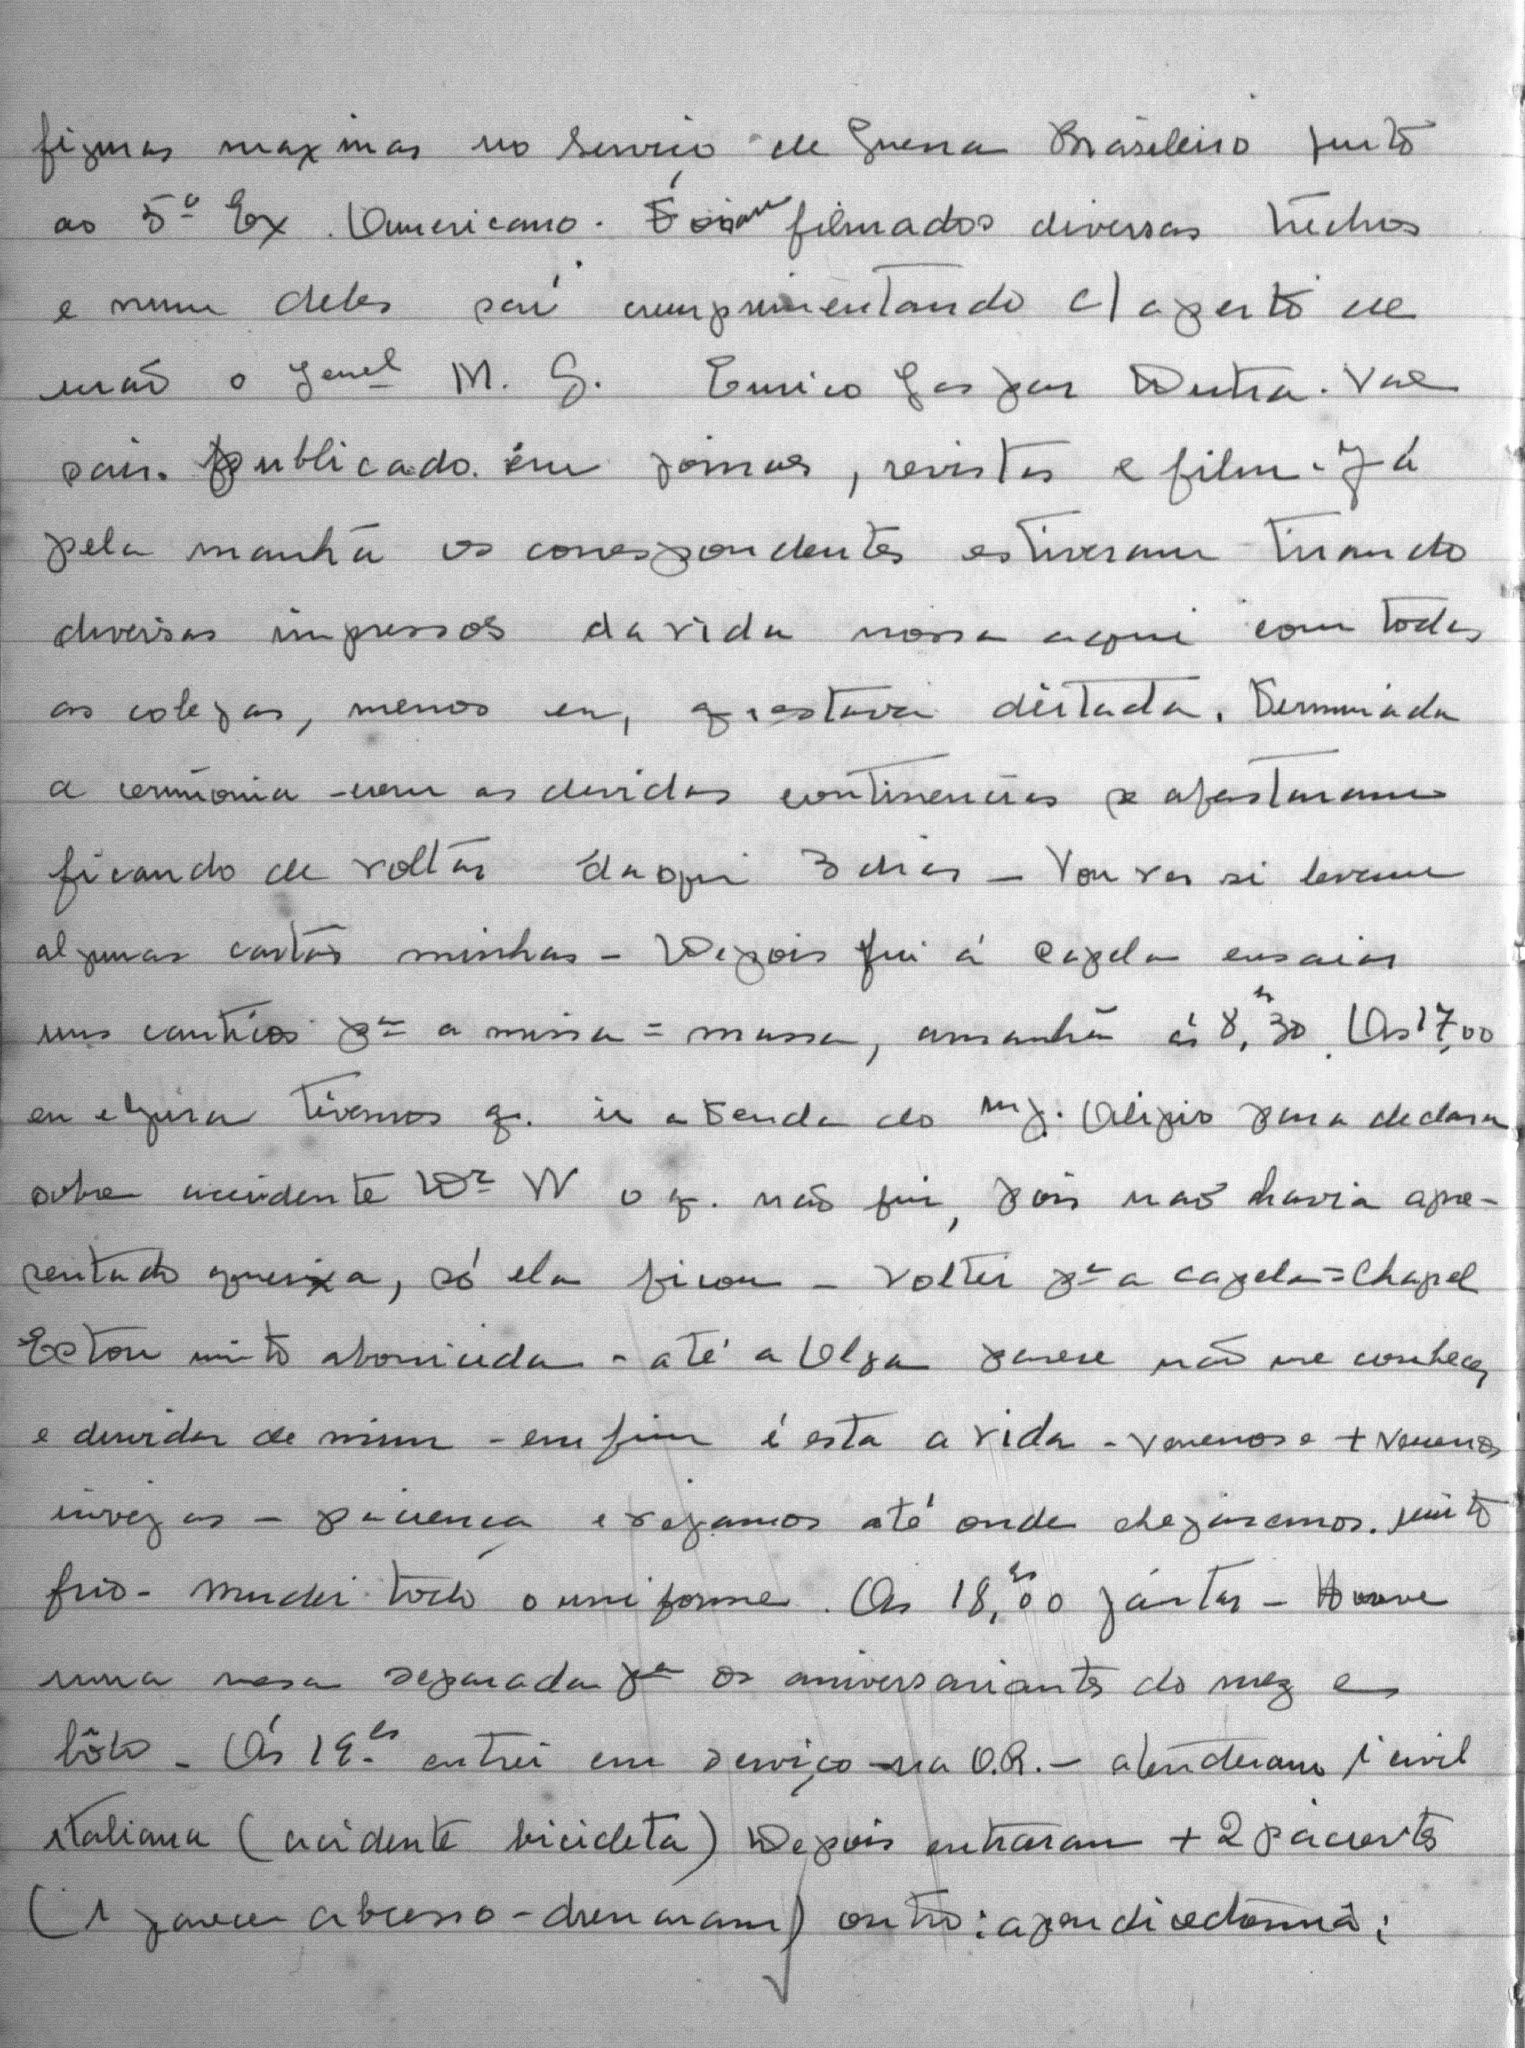 figuras maximas no Serviço de Guerra Brasileiro junto
ao 5º Ex. Americano. Fóram filmados diversos trechos
e num deles saí cumprimentando c/ aperto de
mão o Genel M. G. Eurico Gaspar Dutra. Vae
sair. publicado. em jornaes, revistas e film - Já
pela manhã os correspondentes estiveram tirando
diversas impressos da vida nossa aqui com todas
as colegas, menos eu, q. estava deitada. Terminada
a cerimonia com as devidas continencias se afastaram
ficando de voltar daqui 3 dias - Vou ver si levam
algumas cartas minhas - Depois fui á capela ensaiar
uns canticos pª a missa = massa, amanhã ás 8,hs30. As 17,00
eu e Jura tivemos q. ir a tenda do Mj. Alipio para declarar
sobre accidente Dr W o q. não fui, pois não havia apre-
sentado queixa, só ela ficou - Voltei pª a capela = Chapel
Estou muito aborricida - até a Olga parece não me conhecer
e duvidar de mim - em fim é esta a vida - venenos e + venenos
invejas - paciencia e vejamos até onde chegaremos. muito
frio - Mudei todo o uniforme. As 18,hs00 jántar - Houve
uma mesa separada pª os aniversariantes do mez e
bôlo - Ás 19-hs entrei em serviço na O.R. - atenderam 1 civil
italiana (acidente bicicleta) Depois entraram + 2 pacientes
(1 parece abcesso - drenaram) outro: apendicectomia;